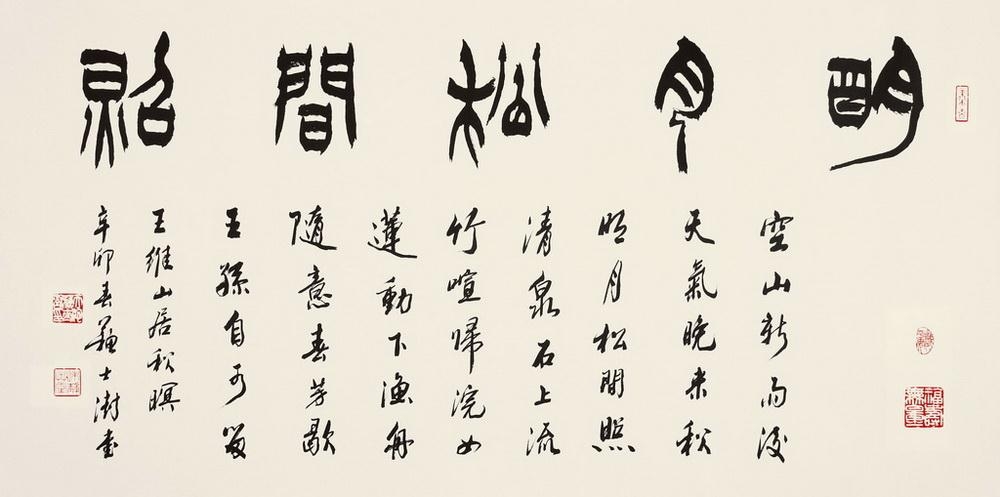 明月松間照
空山新雨後
天氣晚来秋
明月松間照
清泉石上流
竹喧歸浣女
蓮動下漁舟
隨意春芳歇
王孫自可留
王維山居秋暝
辛卯春蘇士澍書
福壽無量